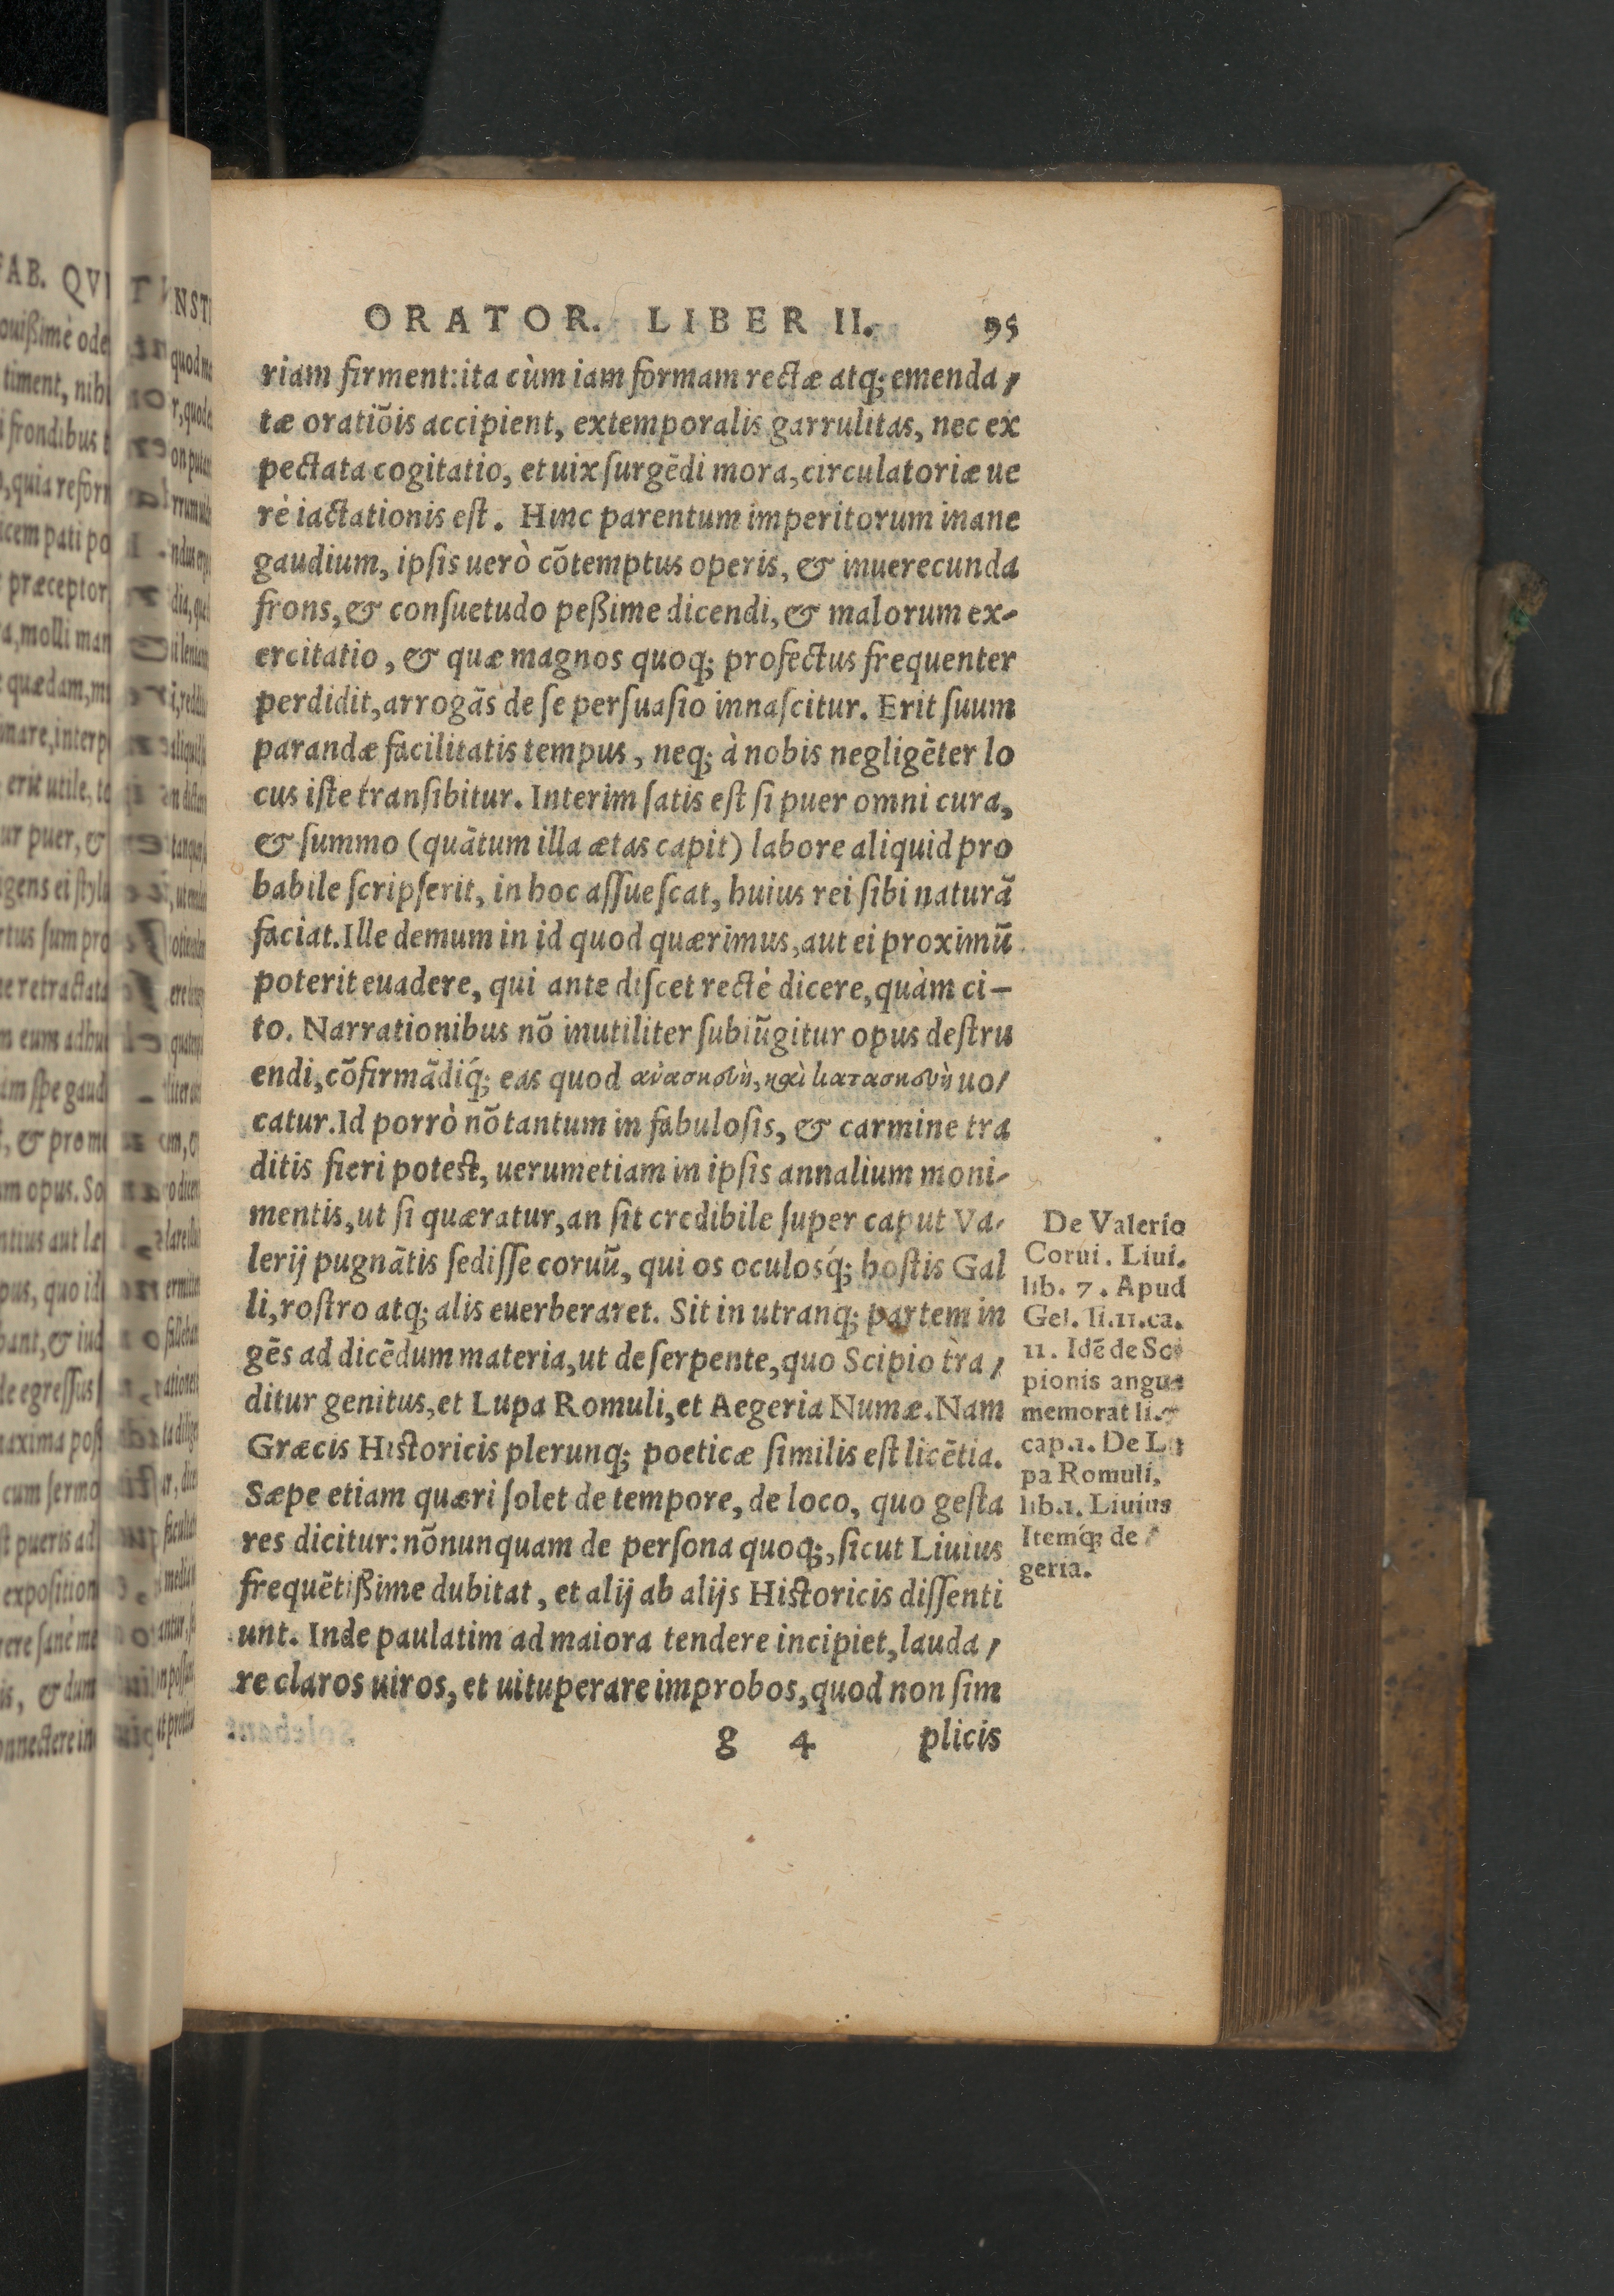 ORATOR. LIBER II. 95
riam firment: ita cùm iam formam rectæ atq; emenda⸗
tæ oratiōis accipient, extemporalis garrulitas, nec ex
pectata cogitatio, et uix ſurgēdi mora, circulatoriæ ue
rè iactationis eſt. Hinc parentum imperitorum inane
gaudium, ipſis uerò cōtemptus operis, & inuerecunda
frons, & conſuetudo peßime dicendi, & malorum ex⸗
ercitatio, & quæ magnos quoq; profectus frequenter
perdidit, arrogās de ſe perſuaſio innaſcitur. Erit ſuum
parandæ facilitatis tempus, neq; à nobis negligēter lo
cus iſte tranſibitur. Interim ſatis eſt ſi puer omni cura,
& ſummo (quātum illa ætas capit) labore aliquid pro
babile ſcripſerit, in hoc aſſueſcat, huius rei ſibi naturā
faciat. Ille demum in id quod quærimus, aut ei proximū
poterit euadere, qui ante diſcet rectè dicere, quàm ci⸗
to. Narrationibus nō inutiliter ſubiūgitur opus deſtru
endi, cōfirmādiq́; eas quod ανασκευὴ, καὶ κατασκευὴ uo⸗
catur. Id porrò nō tantum in fabuloſis, & carmine tra
ditis fieri poteſt, uerumetiam in ipſis annalium moni⸗
mentis, ut ſi quæratur, an ſit credibile ſuper caput Va⸗
lerij pugnātis ſediſſe coruū, qui os oculosq́; hoſtis Gal
li, roſtro atq; alis euerberaret. Sit in utranq; partem in
gēs ad dicēdum materia, ut de ſerpente, quo Scipio tra⸗
ditur genitus, et Lupa Romuli, et Aegeria Numæ. Nam
Græcis Hiſtoricis plerunq; poeticæ ſimilis eſt licētia.
Sæpe etiam quæri ſolet de tempore, de loco, quo geſta
res dicitur: nōnunquam de perſona quoq;, ſicut Liuius
frequētißime dubitat, et alij ab alijs Hiſtoricis diſſenti
unt. Inde paulatim ad maiora tendere incipiet, lauda⸗
re claros uiros, et uituperare improbos, quod non ſim
g 4 plicis
De Valerio
Corui. Liui.
lib. 7. Apud
Gel. li.11.ca.
11. Idē de Sci
pionis angue
memorat li.
cap.1. De Lu
pa Romuli,
lib.1. Liuius
Itemq́; de
geria.